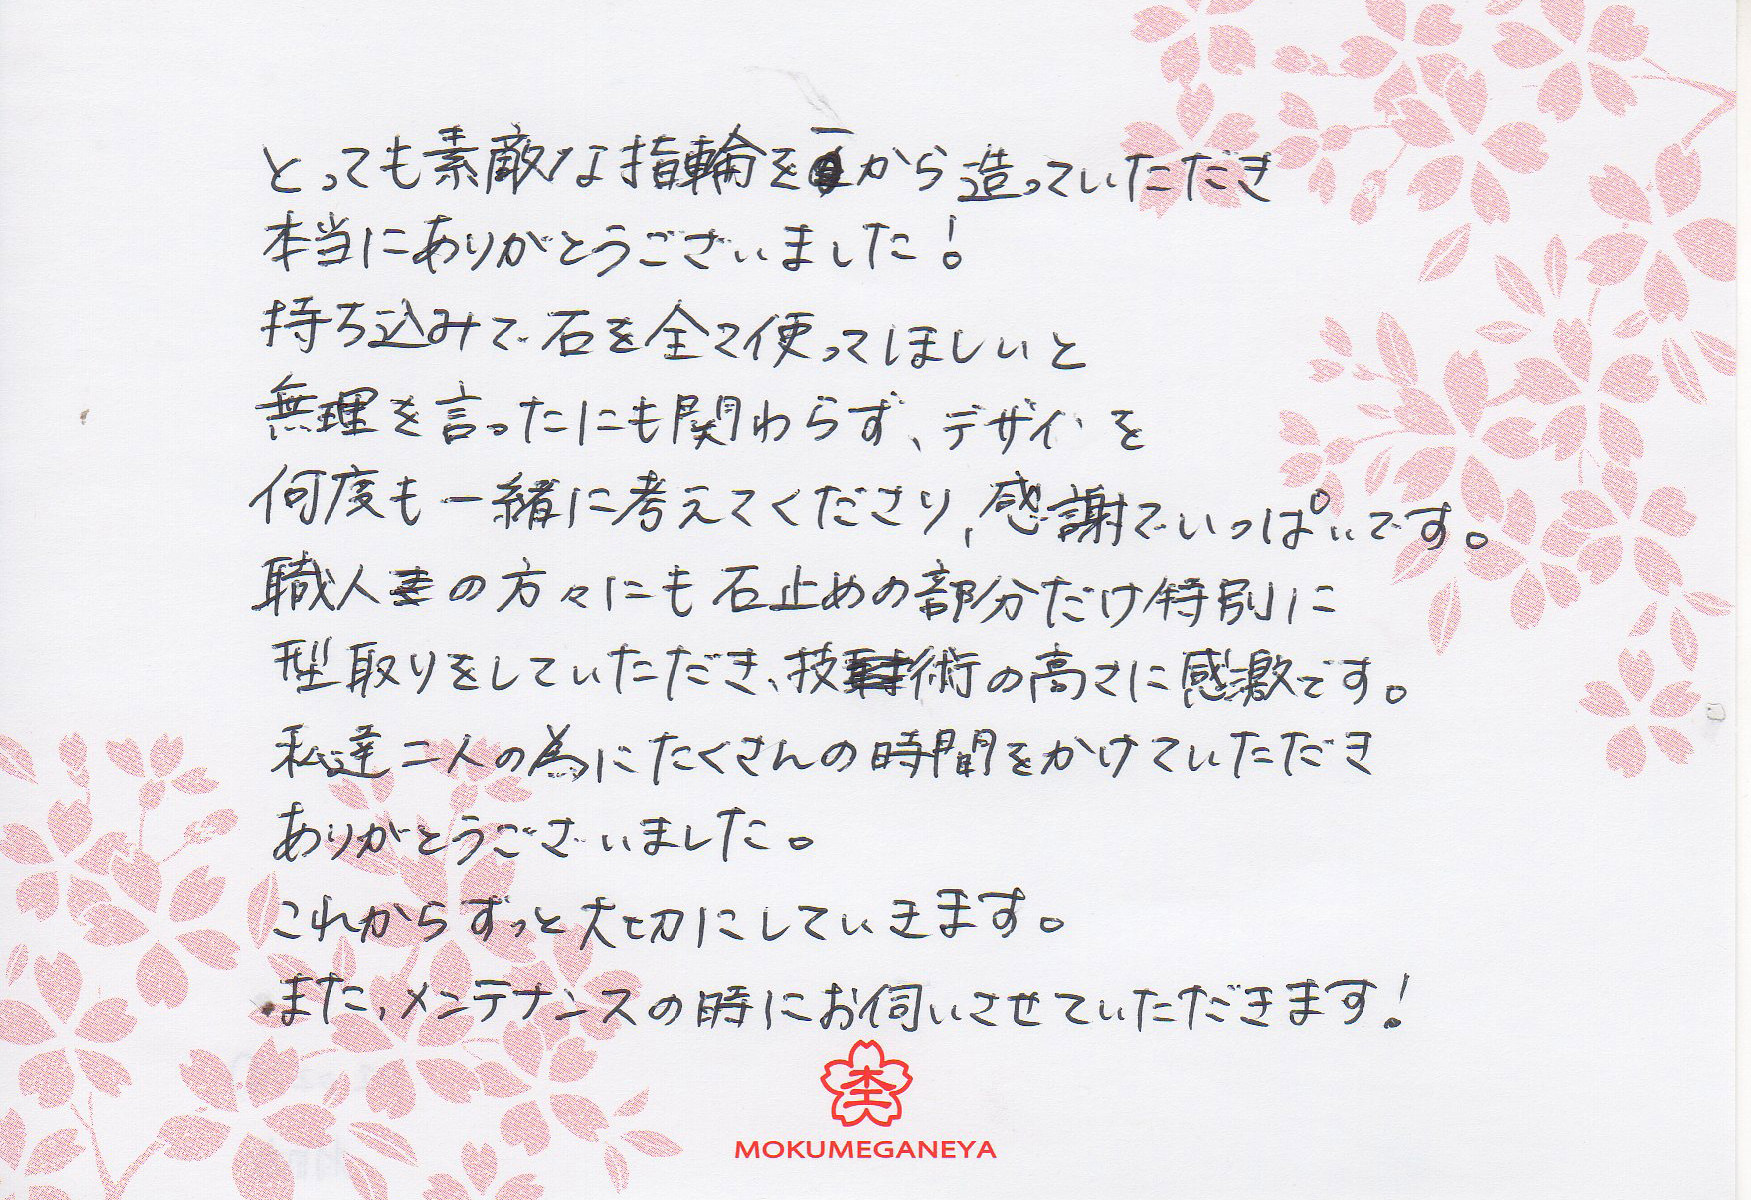 とっても素敵な指輪を一から造っていただき
本当にありがとうございました!
持ち込みで石を全て使ってほしいと
無理を言ったにも関わらず、デザインを
何度も一緒に考えてくださり、感謝でいっぱいです。
職人の方々にも石止めの部分だけ特別に
型取りをしていただき、技術の高さに感激です。
私達二人の為にたくさんの時間をかけていただき
ありがとうございました。
これからずっと大切にしていきます。
また、メンテナンスの時にお伺いさせていただきます!
杢
MOKUMEGANEYA